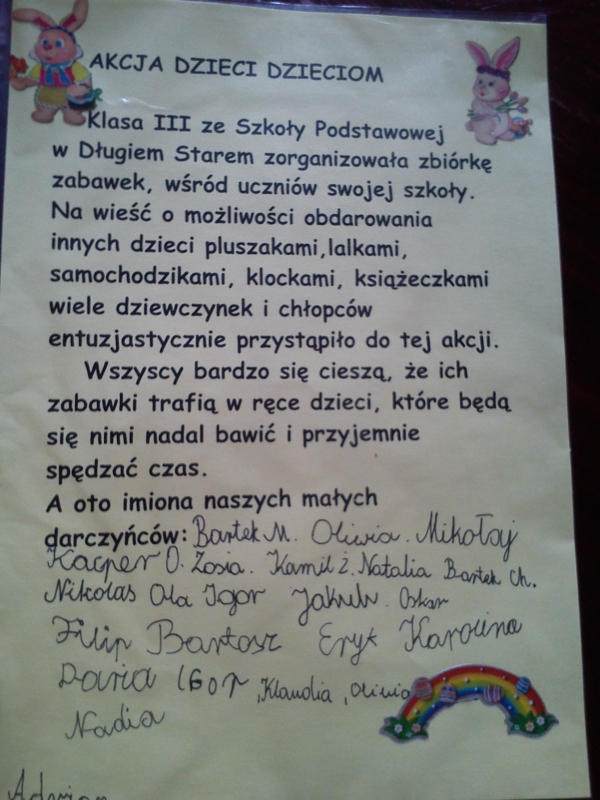 AKCJA DZIECI DZIECIOM
Klasa III ze Szkoły Podstawowej
w Długiem Starem zorganizowała zbiórkę
zabawek, wśród uczniów swojej szkoły.
Na wieść o możliwości obdarowania
innych dzieci pluszakami,lalkami,
samochodzikami, klockami, książeczkami
wiele dziewczynek i chłopców
entuzjastycznie przystąpiło do tej akcji.
Wszyscy bardzo się cieszą, że ich
zabawki trafią w ręce dzieci, które będą
się nimi nadal bawić i przyjemnie
spędzać czas.
A oto imiona naszych małych
darczyńców: Bartek M. Oliwia. Mikołaj
Kacper O. Zosia. Kamil Ż. Natalia Bartek Ch.
Nikolas Ola Igor Jakub. Oskar
Filip Bartosz Eryk Karolina
Daria IGOR ,Klaudia , Oliwia
Nadia
Adrian